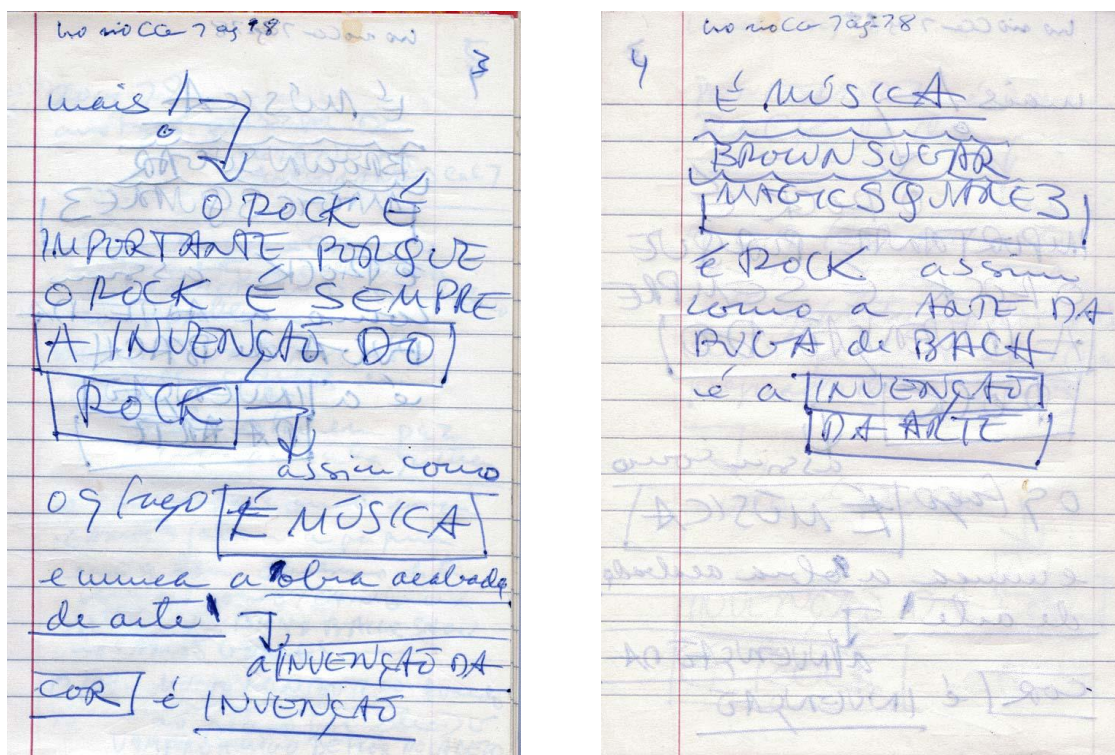 7 ag 78
3
mais
O ROCK É
IMPORTANTE PORQUE
O ROCK É SEMPRE
A INVENÇÃO DO
ROCK
assim como
o q faço É MÚSICA
e nunca a "obra acabada
de arte"
a INVENÇÃO DA
COR é INVENÇÃO
7 ag 78
4
É MÚSICA
BROWN SUGAR
MAGIC SQUARE 3
é ROCK assim
como a ARTE DA
FUGA de BACH
é a INVENÇÃO
DA ARTE